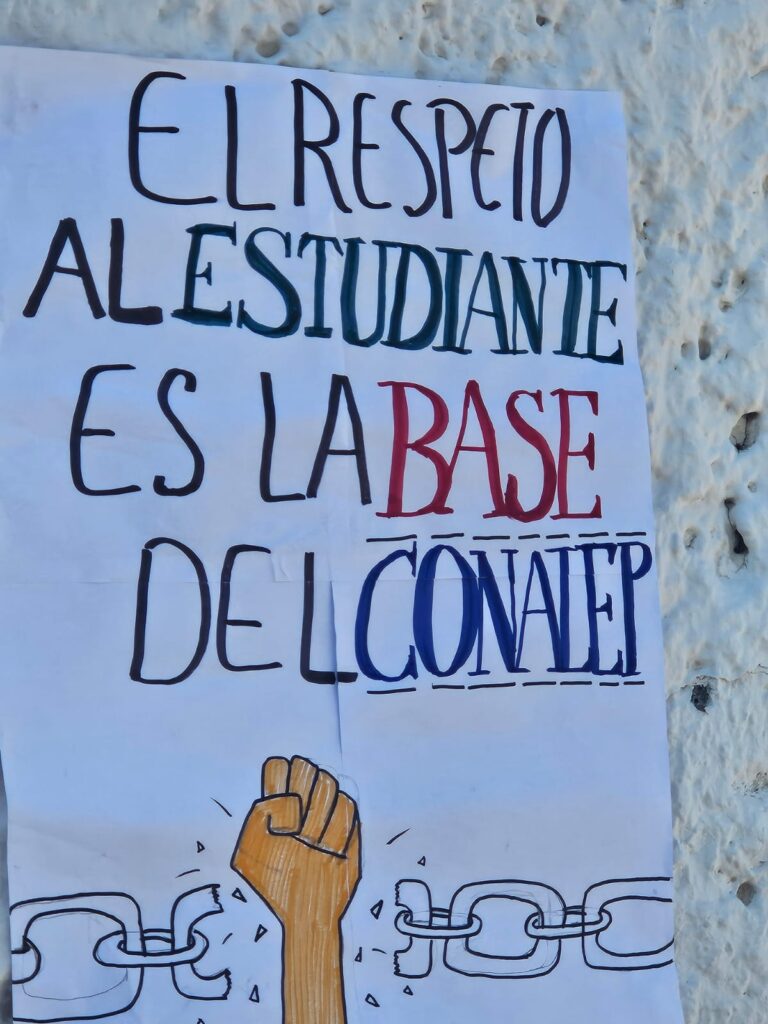 EL RESPETO
AL ESTUDIANTE
ES LA BASE
DEL CONALEP